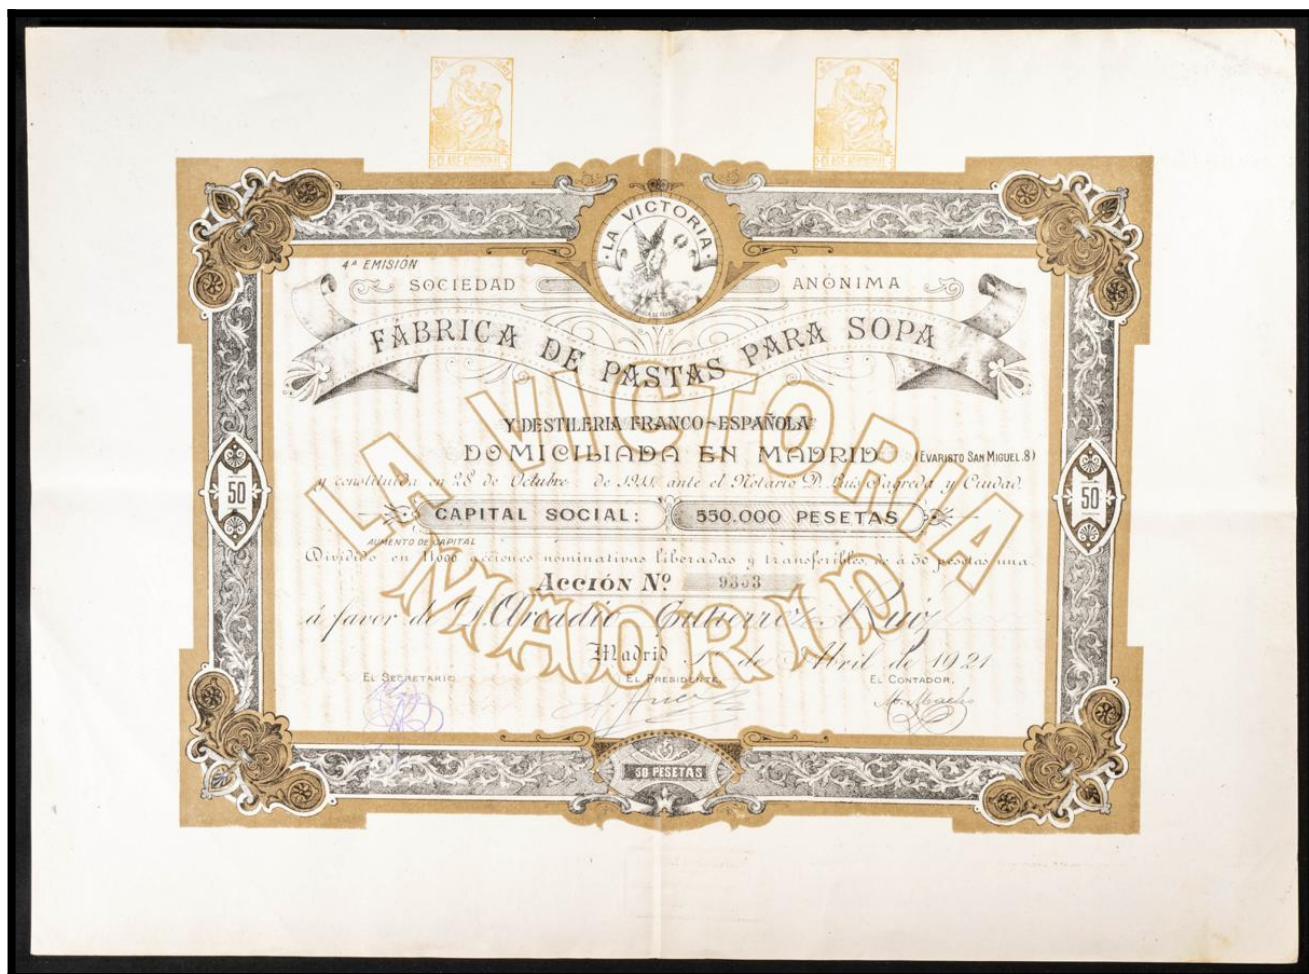 CLASE ADICIONAL
CLASE ADICIONAL
·LA VICTORIA·
4ª EMISIÓN
SOCIEDAD ANÓNIMA
FÁBRICA DE PASTAS PARA SOPA
Y DESTILERIA FRANCO-ESPAÑOLA
DOMICILIADA EN MADRID (EVARISTO SAN MIGUEL.8)
y constituida en 28 de Octubre de 1911, ante el Notario D. Luis Sagreda y Ciudad.
50
50
CAPITAL SOCIAL: 550.000 PESETAS
AUMENTO DE CAPITAL
Dividido en 11000 acciones nominativas liberadas y transferibles, de á 50 pesetas una.
LA VICTORIA
MADRID
ACCIÓN Nº 9353
á favor de D. Arcadio Gutierrez Ruiz
Madrid 1º de Abril de 1921
EL SECRETARIO
EL PRESIDENTE,
EL CONTADOR,
50 PESETAS